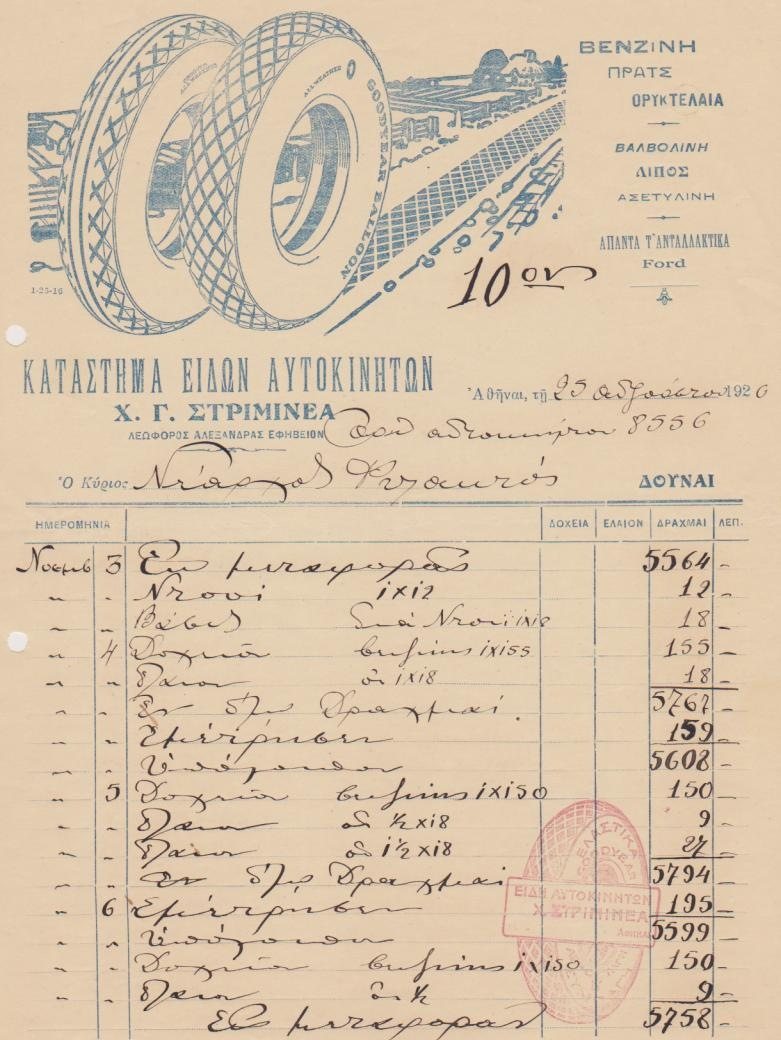 ALL WEATHER
ALL WEATHER
GOODYEAR BALLOON
1-25-16
ΒΕΝΖΙΝΗ
ΠΡΑΤΣ
ΟΡΥΚΤΕΛΑΙΑ
ΒΑΛΒΟΛΙΝΗ
ΛΙΠΟΣ
ΑΣΕΤΥΛΙΝΗ
ΑΠΑΝΤΑ Τ'ΑΝΤΑΛΛΑΚΤΙΚΑ
Ford
10ον
ΚΑΤΑΣΤΗΜΑ ΕΙΔΩΝ ΑΥΤΟΚΙΝΗΤΩΝ
Χ. Γ. ΣΤΡΙΜΙΝΕΑ
ΛΕΩΦΟΡΟΣ ΑΛΕΞΑΝΔΡΑΣ ΕΦΗΒΕΙΟΝ
Ἀθῆναι, τῇ 25 1926
αὐτοκινήτου 8556
Ὁ Κύριος ΔΟΥΝΑΙ
ΗΜΕΡΟΜΗΝΙΑ ΔΟΧΕΙΑ ΕΛΑΙΟΝ ΔΡΑΧΜΑΙ ΛΕΠ.
Νοεμβ 3 Ἐκ μεταφορᾶς 5564 -
" " Ντουί 1x12 12 -
" " διά Ντουί 1x18 18 -
" 4 Δοχεῖον βενζίνης 1x155 155 -
" " Ἔλαιον ὀκ 1x18 18 -
" " Ἐν ὅλῳ Δραχμαί 5767 -
" " Ἐμέτρησεν 159 -
" " Ὑπόλοιπον 5608 -
" 5 Δοχεῖον βενζίνης 1x150 150 -
" " Ἔλαιον ὀκ ½ x18 9 -
" " Ἔλαιον ὀκ 1½ x18 27 -
" " Ἐν ὅλῳ Δραχμαί 5794 -
" 6 Ἐμέτρησεν 195 -
" " Ὑπόλοιπον 5599 -
" " Δοχεῖον βενζίνης 1x150 150 -
" " Ἔλαιον ὀκ ½ 9 -
Εἰς μεταφοράν 5758 -
ΕΛΑΣΤΙΚΑ
GOODYEAR
ΕΙΔΗ ΑΥΤΟΚΙΝΗΤΩΝ
Χ. ΣΤΡΙΜΙΝΕΑ
ΑΘΗΝΑΙ